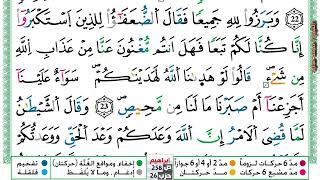 22 وَبَرَزُوا۟ لِلهِ جَمِيعاً فَقَالَ اَ۬لضُّعَفَٰٓؤُا۟ لِلذِينَ اَ۪سْتَكْبَرُوٓا۟
إِنَّا كُنَّا لَكُمْ تَبَعاً فَهَلَ اَنتُم مُّغْنُونَ عَنَّا مِنْ عَذَابِ اِ۬للَّهِ
مِن شَےْءٖۖ قَالُوا۟ لَوْ هَد۪يٰنَا اَ۬للَّهُ لَهَدَيْنَٰكُمْۖ سَوَآءٌ عَلَيْنَآ
أَجَزِعْنَآ أَمْ صَبَرْنَا مَا لَنَا مِن مَّحِيصٖۖ 23 وَقَالَ اَ۬لشَّيْطَٰنُ
لَمَّا قُضِيَ اَ۬لَامْرُ إِنَّ اَ۬للَّهَ وَعَدَكُمْ وَعْدَ اَ۬لْحَقِّ وَوَعَدتُّكُمْ
مدّ 6 حركات لزوماً مدّ 2 أو 4 أو 6 جوازاً إبراهيم 258 إخفاء، ومواقع الغُنَّة (حركتان) تفخيم
مدّ مشبع 6 حركات مدّ حركتان 26 إدغام، وما لا يُلفَظ قلقلة